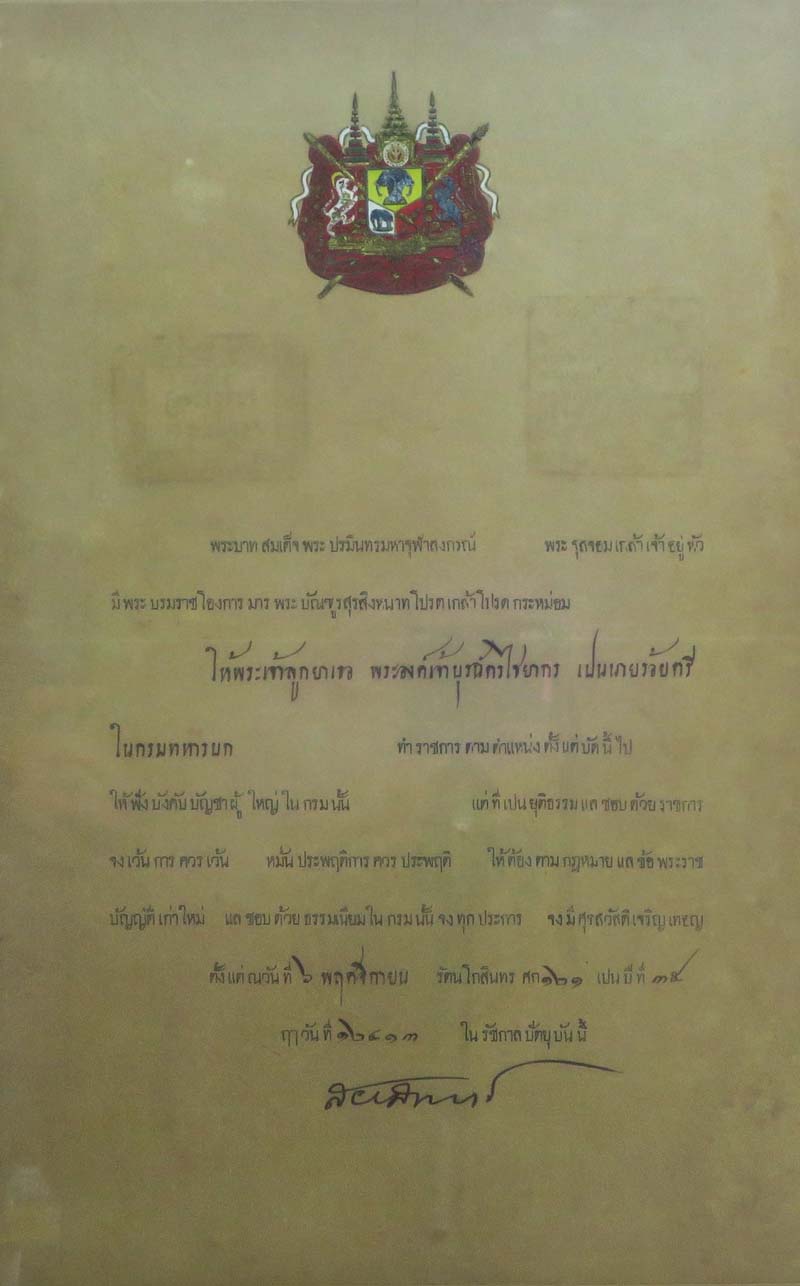 พระบาท สมเด็จ พระ ปรมินทรมหาจุฬาลงกรณ์ พระ จุลจอม เกล้า เจ้า อยู่ หัว
มี พระ บรมราช โองการ มาร พระ บัณฑูรสุรสิงหนาท โปรด เกล้า โปรด กระหม่อม
ให้พระเจ้าลูกยาเธอ พระองค์เจ้าบุรฉัตรไชยากร เปนนายร้อยตรี
ในกรมทหารบก ทำ ราชการ ตาม ตำแหน่ง ตั้ง แต่ บัด นี้ ไป
ให้ ฟัง บังคับ บัญชา ผู้ ใหญ่ ใน กรม นั้น แต่ ที่ เปน ยุติธรรม แล ชอบ ด้วย ราชการ
จง เว้น การ ควร เว้น หมั่น ประพฤติการ ควร ประพฤติ ให้ ต้อง ตาม กฎหมาย แล ข้อ พระราช
บัญญัติ เก่า ใหม่ แล ชอบ ด้วย ธรรมเนียม ใน กรม นั้น จง ทุก ประการ จง มี ศุขสวัสดิ เจริญ เทอญ
ตั้ง แต่ ณวัน ที่ ๖ พฤศจิกายน รัตนโกสินทร ศก ๑๒๑ เปน ปี ที่ ๓๕
ฤๅ วัน ที่ ๑๒๔๑๓ ใน รัชกาล ปัตยุบัน นี้